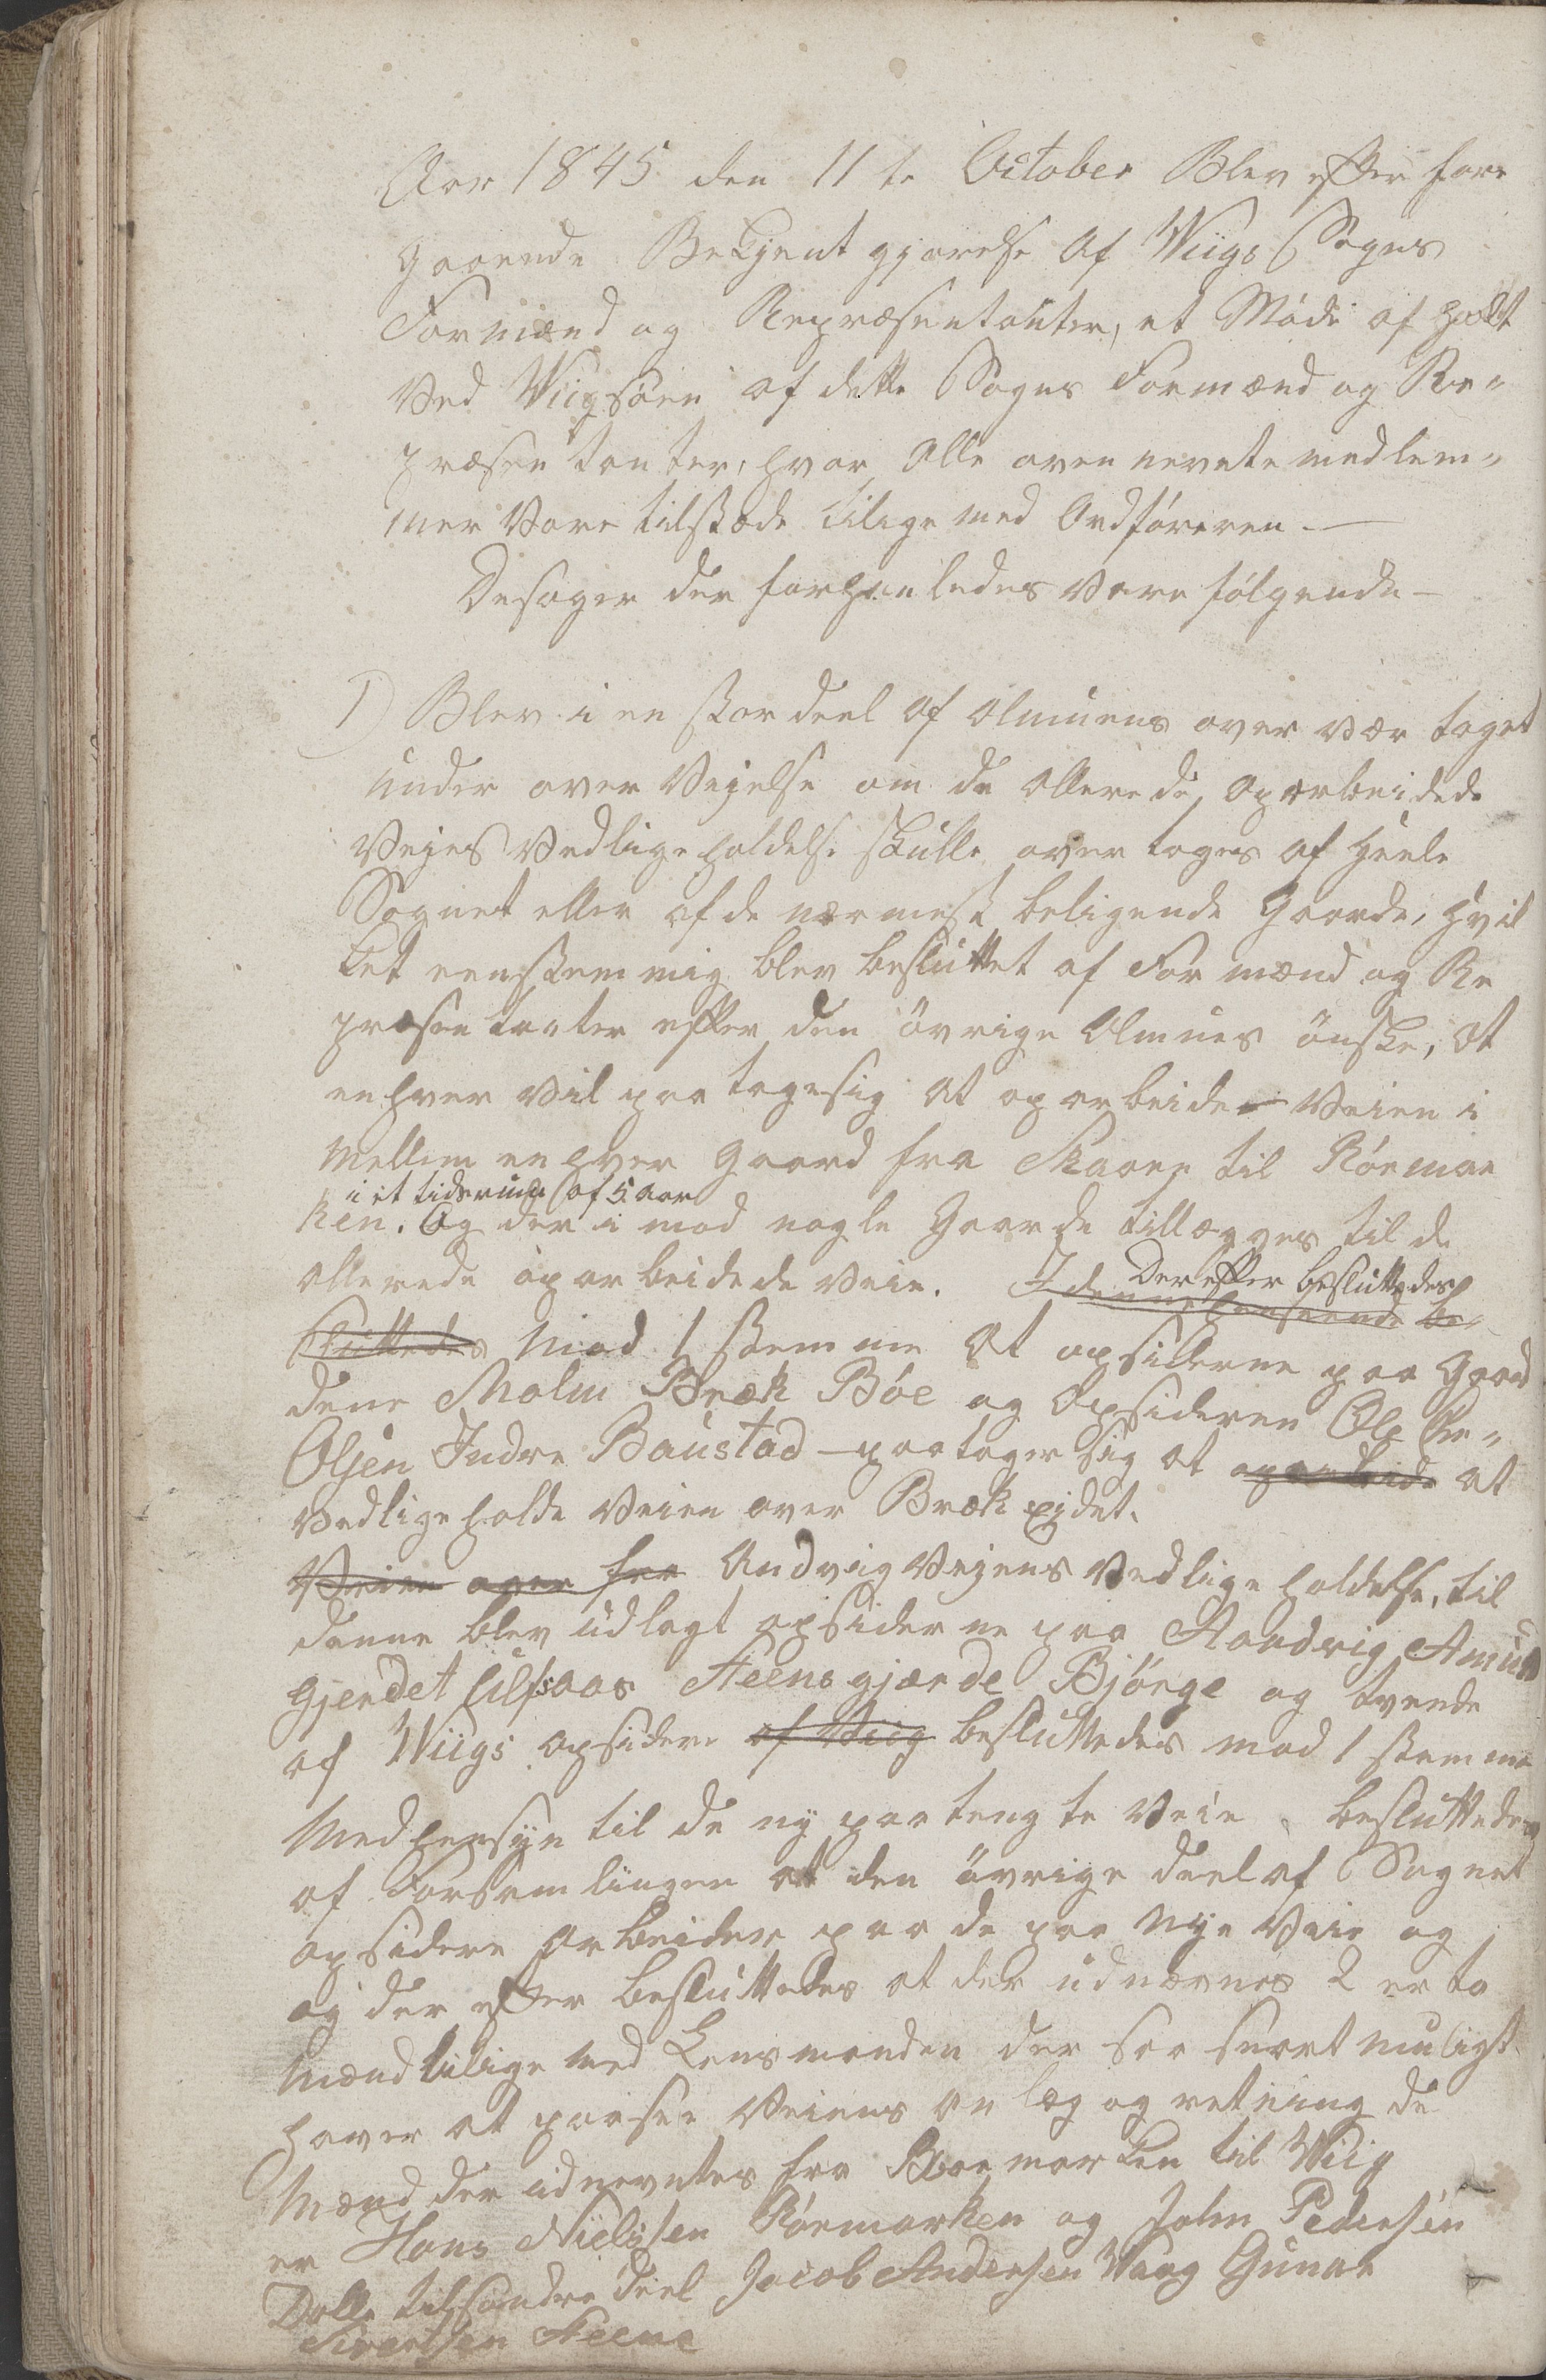 Aar 1845 den 11te October Blev efter fore
gaaende Bekjent gjørelse af Wiigs Sogns
Formænd og Repræsentanter, et Møde af holdt
Ved Wiigsøen af dette Sogns Formænd og Re-
præsentanter, hvor alle oven nevnte medlem-
mer Vare tilstæde tilige med Ordføreren. —
De sager der forhanledes vare følgende —
1) Blev i en stor deel af Almuens over vær taget
under over Vejelse om de allerede oparbeidede
Vejes Vedligeholdelse skulle over tages af Heele
Sognet eller af de nærmest beligende Gaarde, hvil
ket eenstemmig blev besluttet af For mænd og Re
præsentanter efter den øvrige Almues ønske, at
en hver vil paa tage sig at oparbeide Veien i
Mellem en hver Gaard fra Skaare til Rörmar
i et tidsrum af 5 aar
ken. Og der i mod nogle Gaarde tillægges til de
allerede oparbeidede Veie. I denne henseende be-
Derefter besluttedes
sluttedes Mod 1 stemme At opsiderne paa Gaar
dene Malm Bræk Böe og Opsideren Ole
Olsen Indre Baustad – paatager sig at oparbeide at
vedligeholde Veien over Bræk ejdet.
Veien over fra Andvig Vejens Vedlige holdelse, til
denne blev udlagt opsiderne paa Aandvig
Gjerdet Ulfsaas Steensgjærde Bjørge og tvende
af Wiigs opsidere af Viig besluttedes mod 1 stemme
Med hensyn til de ny paa tengte Veie besluttedes
af Forsamlingen at den øvrige deel af Sognets
opsidere arbeider paa de paa Nye Veie og
og der efter besluttedes at der udnævnes 2
Mænd tilige med Lensmanden der saa snart muligt
haver at paasee Veiens an læg og retning de
Mænd der udnevntes fra Rörmarken til Wiig
er Hans Nielssen Rörmarken og John Pedersen
Dolle til søndre deel Jacob Andersen Vaag Gunar
Sivertsen Steene